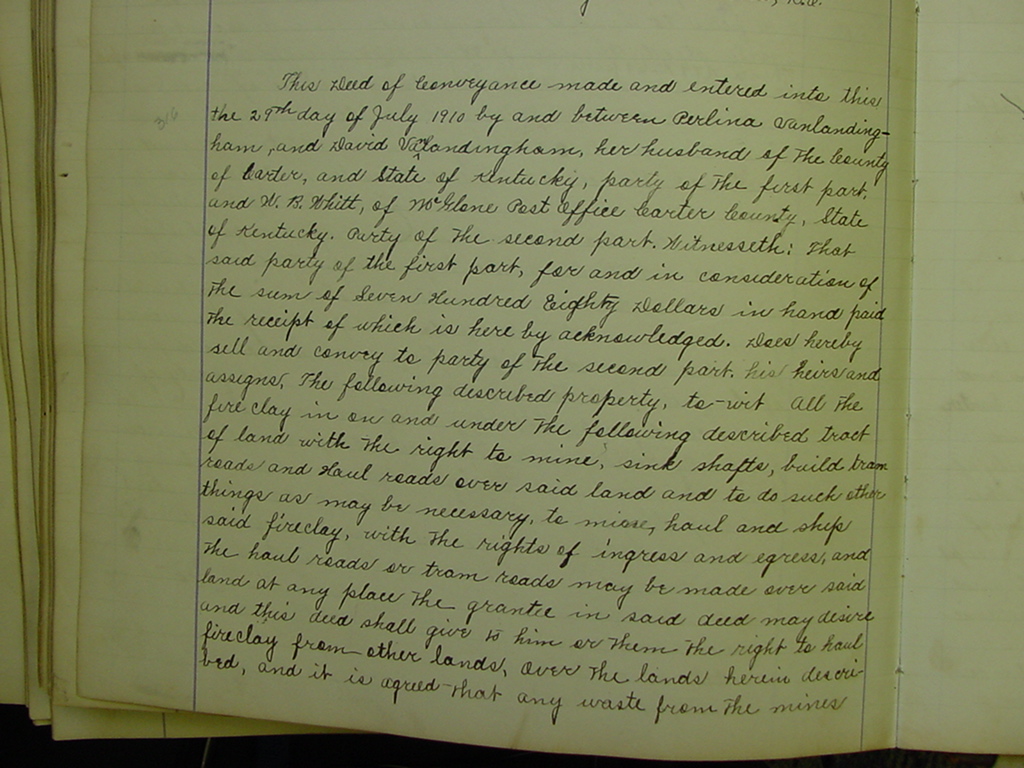 This Deed of Conveyance made and entered into this
the 29th day of July 1910 by and between Perlina Vanlanding-
ham, and David Valandingham, her husband of The County
of Carter, and State of Kentucky, party of The first part,
and W. B. Whitt, of McGlone Post Office Carter County, State
of Kentucky. Party of The second part. Witnesseth: That
said party of the first part, for and in consideration of
The sum of Seven Hundred Eighty Dollars in hand paid
The receipt of which is here by acknowledged. Does hereby
sell and convey to party of The second part. his heirs and
assigns, The following described property, to-wit All The
fire clay in on and under The following described tract
of land with The right to mine, sink shafts, build tram
roads and Haul roads over said land and to do such other
things as may be necessary, to mine, haul and ship
said fireclay, with The rights of ingress and egress, and
The haul roads or tram roads may be made over said
land at any place The grantee in said deed may desire
and this deed shall give to him or Them The right to haul
fireclay from other lands, over The lands herein descri-
bed, and it is agreed That any waste from The mines
316